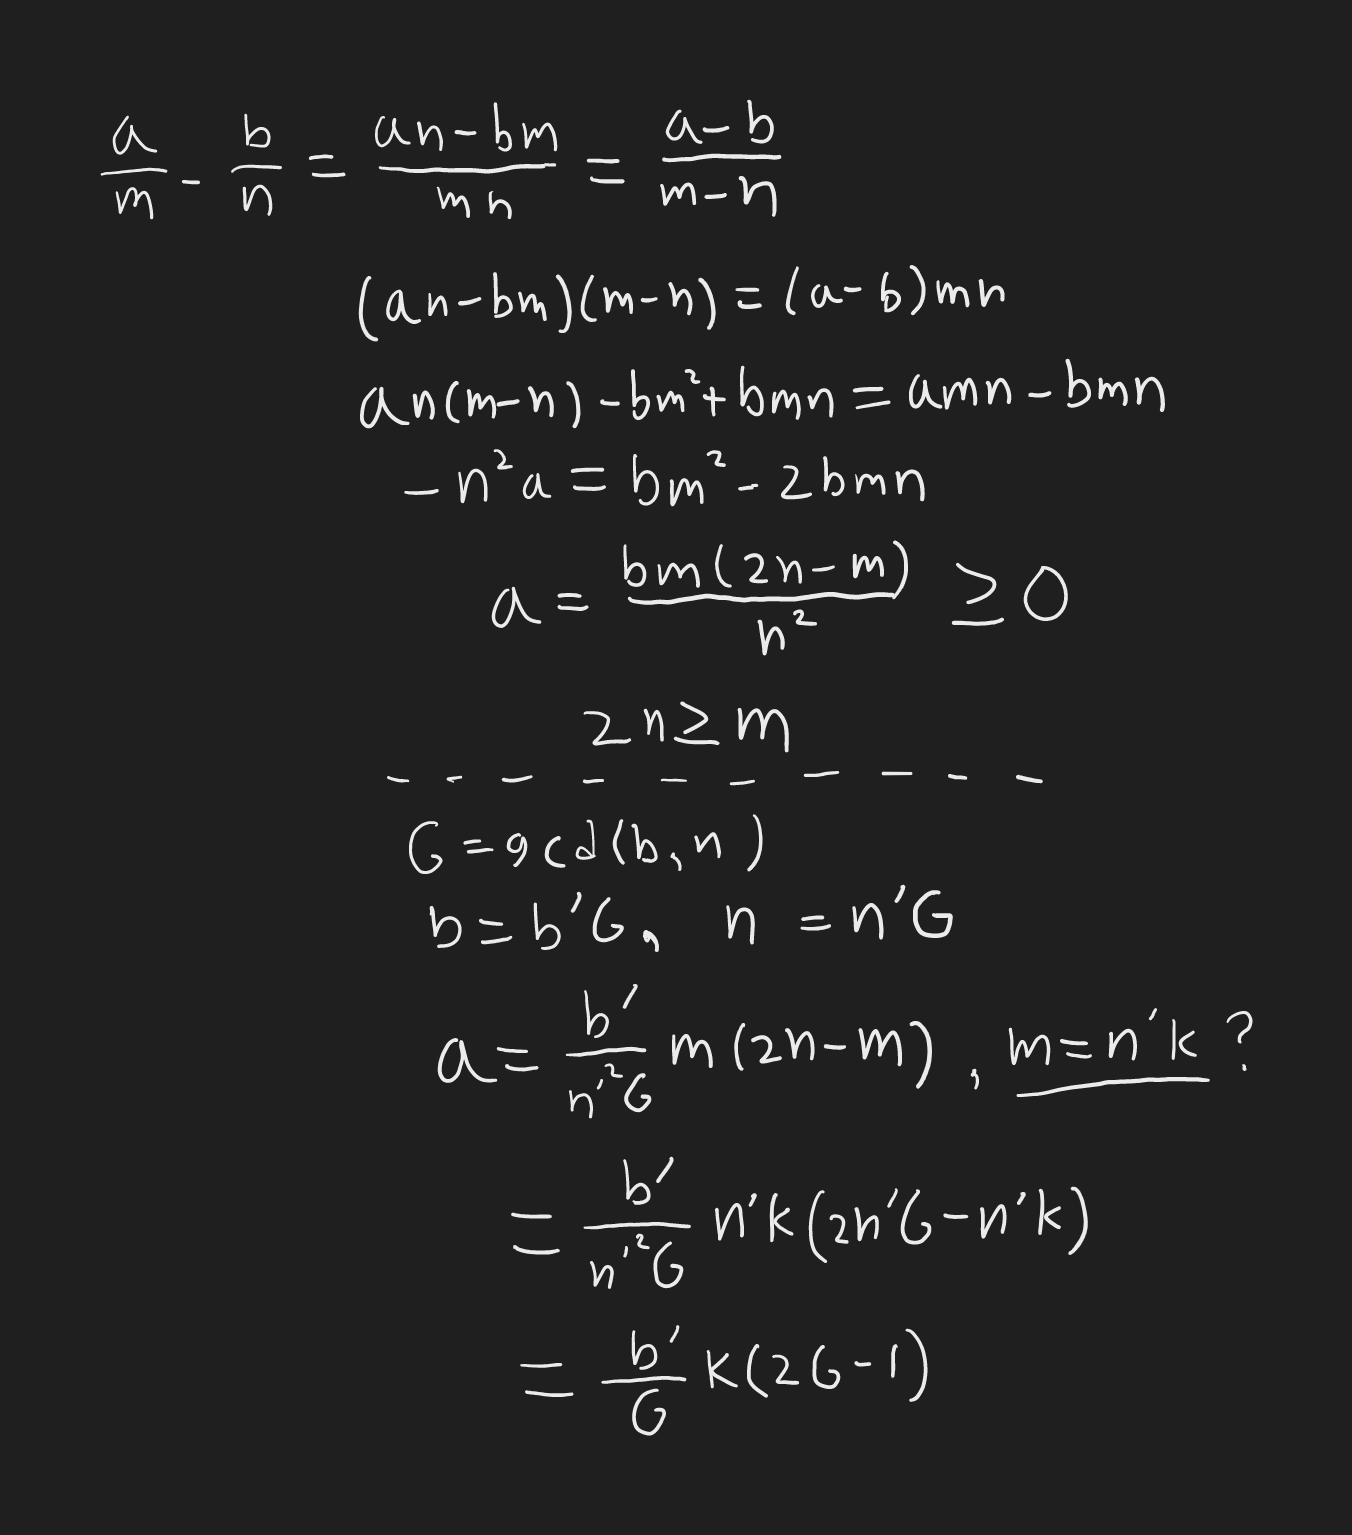 a/m - b/n = (an-bm)/(mn) = (a-b)/(m-n)
(an-bm)(m-n) = (a-b)mn
an(m-n) - bm² + bmn = amn - bmn
-n²a = bm² - 2bmn
a = bm(2n-m)/n² ≥ 0
2n ≥ m
- - - - - - - - - -
G = gcd(b, n)
b = b'G, n = n'G
a = b'/(n'²G) m(2n-m), m = n'k ?
= b'/(n'²G) n'k(2n'G - n'k)
= b'/G k(2G-1)